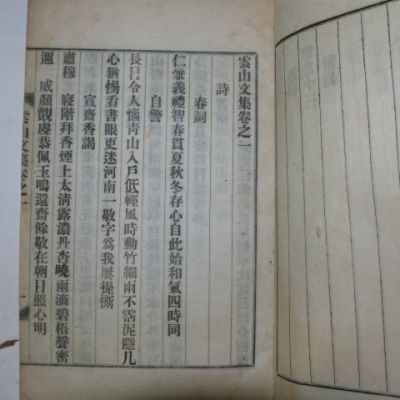 雲山文集卷之一
詩
春詞
仁兼義禮智春貫夏秋冬存心自此始和氣四時同
自警
長日令人惱靑山入戶低輕風時動竹細雨不霑泥隱几
心猶惕看書眼更迷河南一敬字爲我屢提撕
宣齋香謁
肅穆 寢階拜香煙上太淸露濃丹杏曉雨滴碧梧聲密
邇 威顔覿虔恭佩玉鳴還齋餘敬在朝日照心明
雲山文集卷之一
一